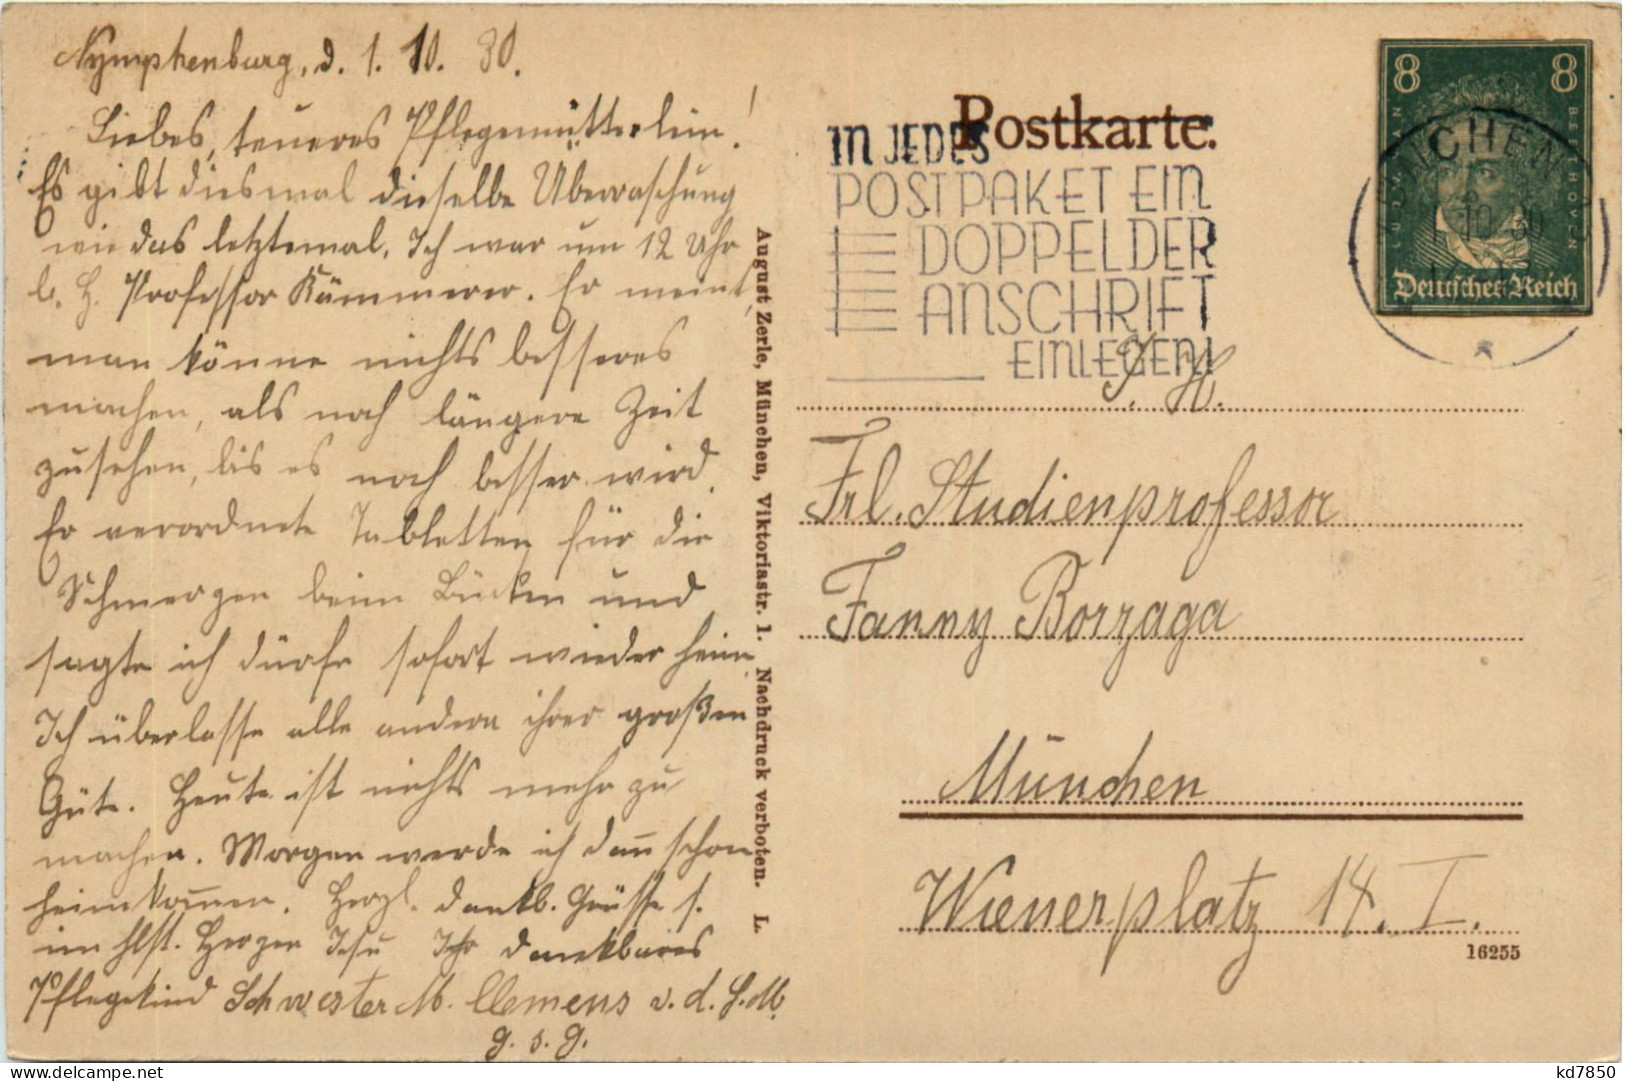 Nymphenburg, d. 1. 10. 30.
Liebes, teueres Pflegemütterlein!
Es gibt diesmal dieselbe Überraschung
wie das letztemal. Ich war um 12 Uhr
b. H. Professor Kämmerer. Er meint,
man könne nichts besseres
machen, als noch längere Zeit
zusehen, bis es noch besser wird.
Er verordnete Tabletten für die
Schmerzen beim Bücken und
sagte ich dürfe sofort wieder heim.
Ich überlasse alle andern ihrer großen
Güte. Heute ist nichts mehr zu
machen. Morgen werde ich dann schon
heimkommen. Herzl. dankb. Grüsse s.
im hlst. Herzen Jesu Ihr dankbares
Pflegekind Schwester M. Clemens v. d. H. M.
g. s. g.
August Zerle, München, Viktoriastr. 1. Nachdruck verboten. L.
Postkarte.
IN JEDES
POSTPAKET EIN
DOPPELDER
ANSCHRIFT
EINLEGEN!
8 8
LUDWIG VAN BEETHOVEN
Deutsches Reich
MÜNCHEN
1.10.30
I. H.
Frl. Studienprofessor
Fanny Borzaga
München
Wienerplatz 14. I.
16255
kd7850